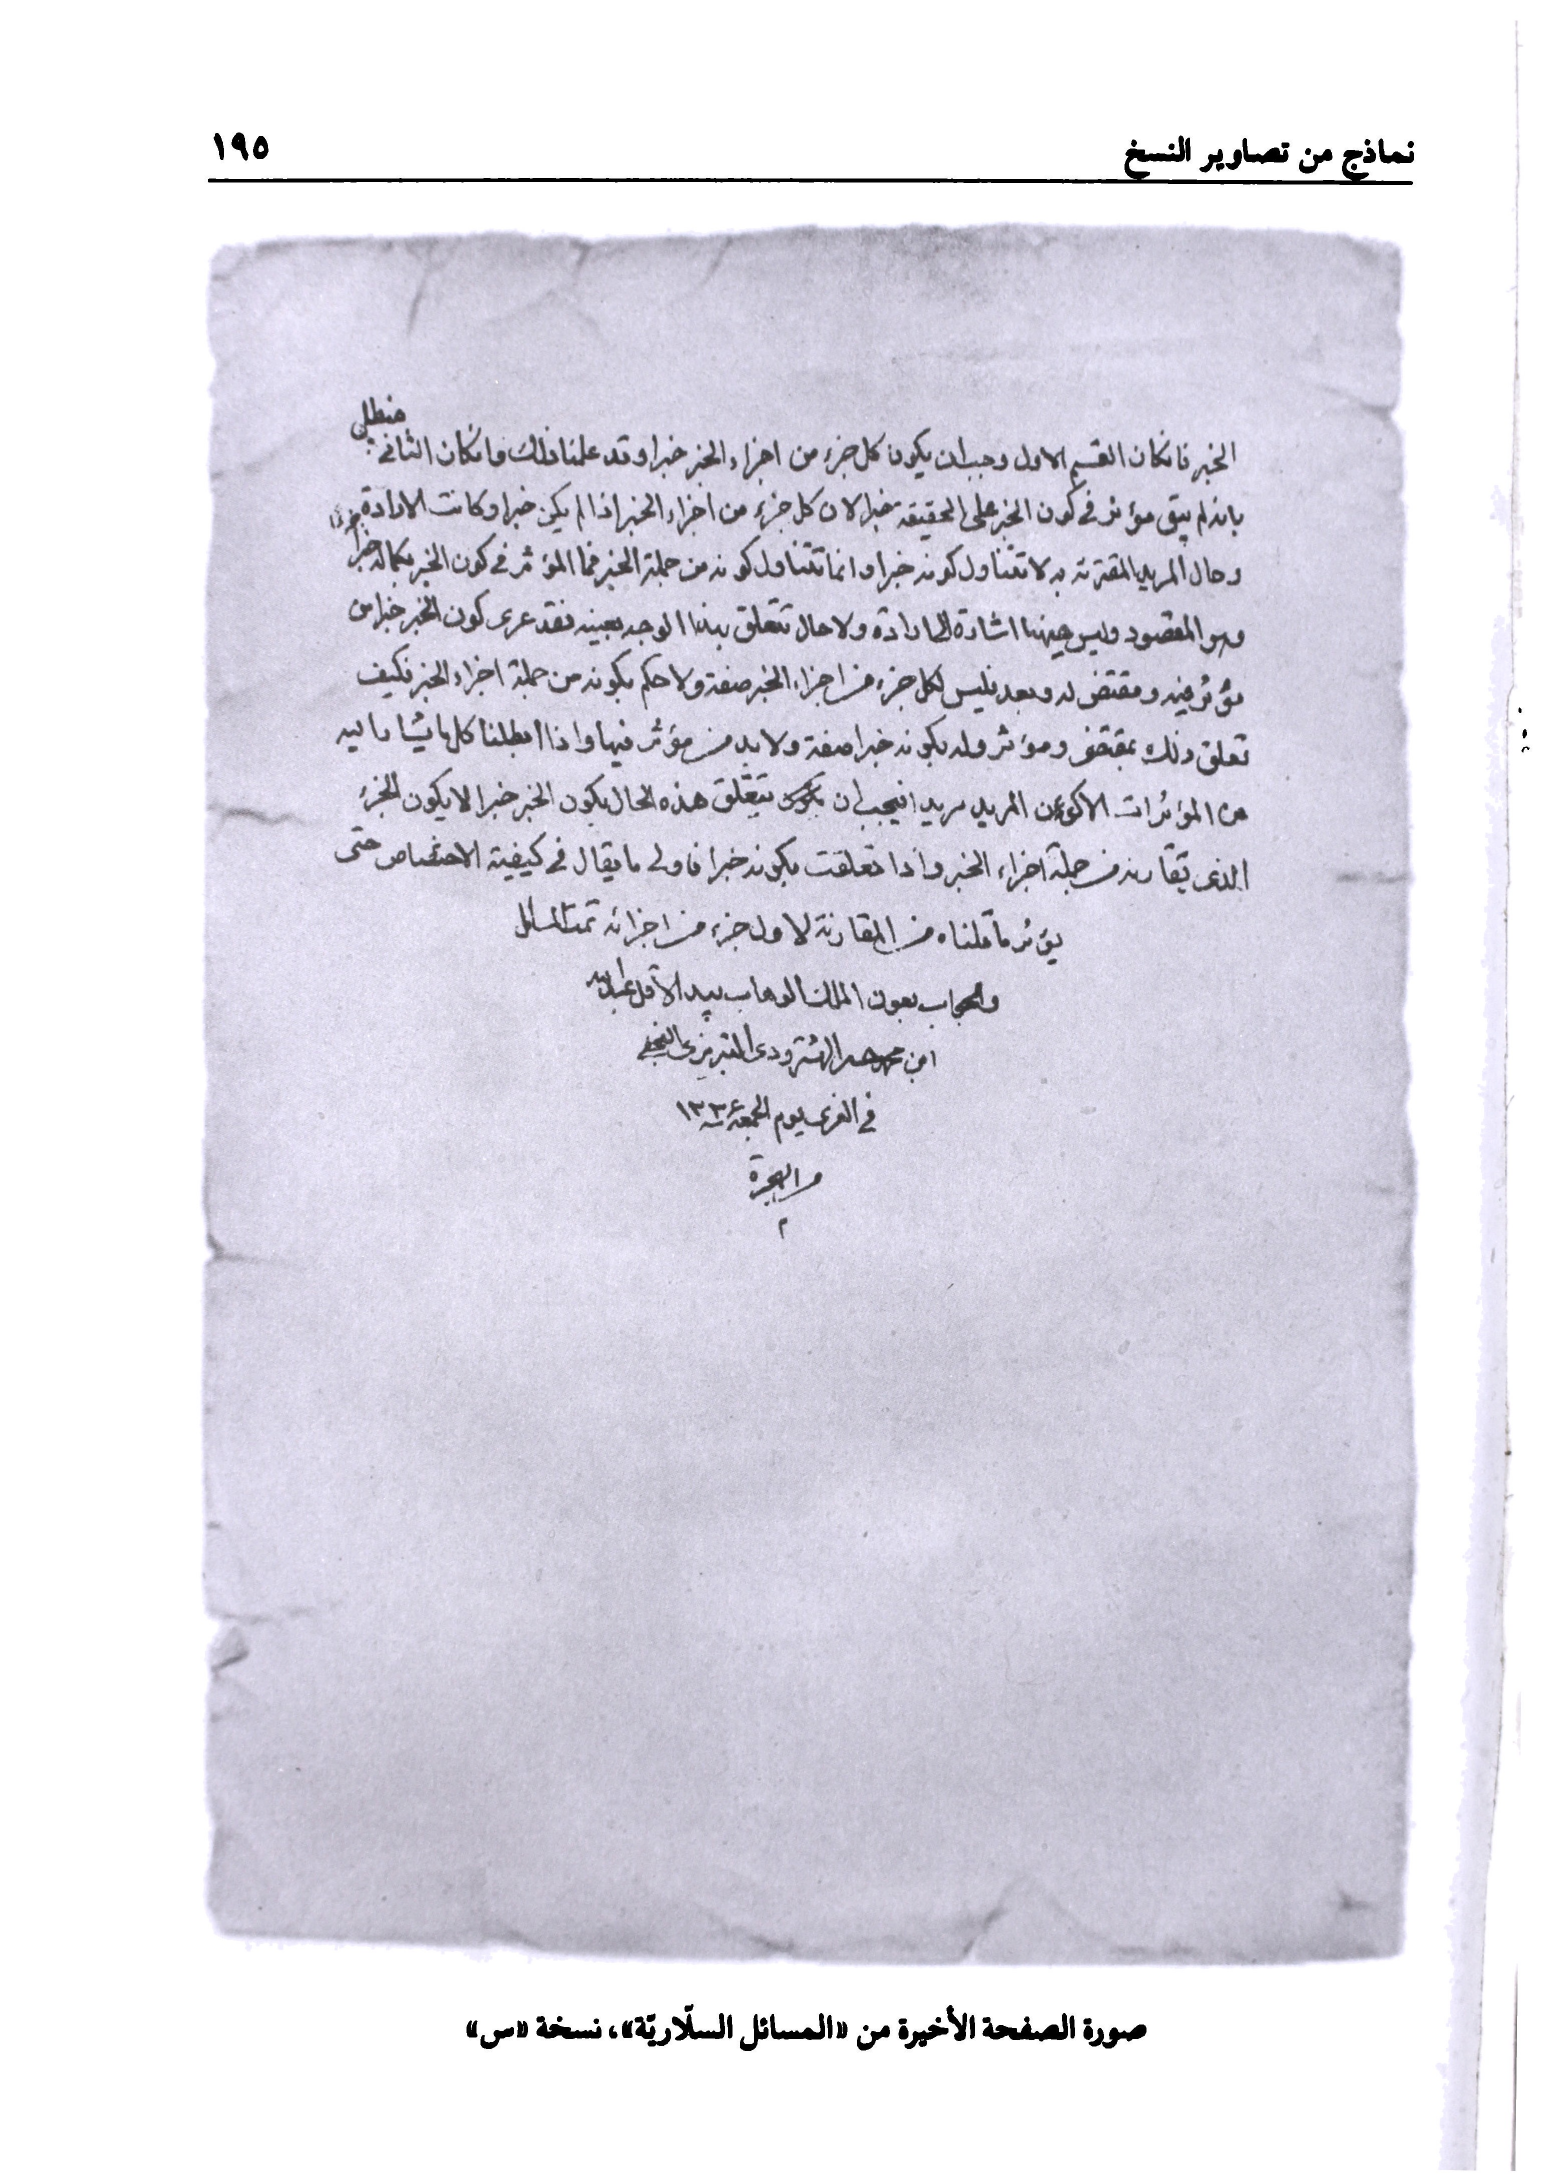 نماذج من تصاوير النسخ
١٩٥
فتطل
الخبر فانكان القسم الاول وجب ان يكون كل جزء من اجزاء الخبر خبرا وقد علمنا ذلك وانكان الثاني
بانه لم يبق مؤثر في كون الخبر على الحقيقة خبرا لان كل جزء من اجزاء الخبر اذا لم يكن خبرا وكانت الارادة
وحال المريد المقترنة به لا تتناول كونه خبرا وانما تتناول كونه من جملة الخبر فما المؤثر في كون الخبر بكماله خبرا
وهو المقصود وليس ههنا اشارة الى ارادة ولا حال تتعلق بهذا الوجه بعينه فقد عرى كون الخبر خبرا من
مؤثر فيه ومقتض له وبعد فليس لكل جزء من اجزاء الخبر صفة ولا حكم بكونه من جملة اجزاء الخبر فكيف
تعلق ذلك بمقتض ومؤثر وله بكونه خبرا صفة ولابد من مؤثر فيها واذا ابطلنا كل ما يشار اليه
من المؤثرات الا كون المريد مريدا فيجب ان يتعلق هذه الحال بكون الخبر خبرا لا بكون الجزء
الذى تقارنه من جملة اجزاء الخبر واذا تعلقت بكونه خبرا فاولى ما يقال في كيفية الاختصاص حتى
يؤثر ما قلناه من المقارنة لاول جزء من اجزائه تمت المسائل
والجواب بعون الملك الوهاب بيد الاقل
ابن محمد التبريزى النجفى
في الغرى يوم الجمعة ١٣٣٤
من الهجرة
م
صورة الصفحة الأخيرة من «المسائل السلّاريّة»، نسخة «س»